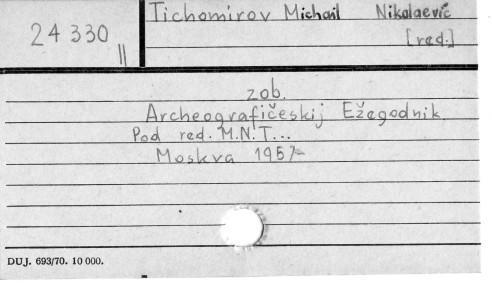 Tichomirov Michail Nikolaevič
[red.]
24 330
||
zob.
Archeografičeskij Ežegodnik.
Pod red. M.N.T...
Moskva 1957-
DUJ. 693/70. 10 000.